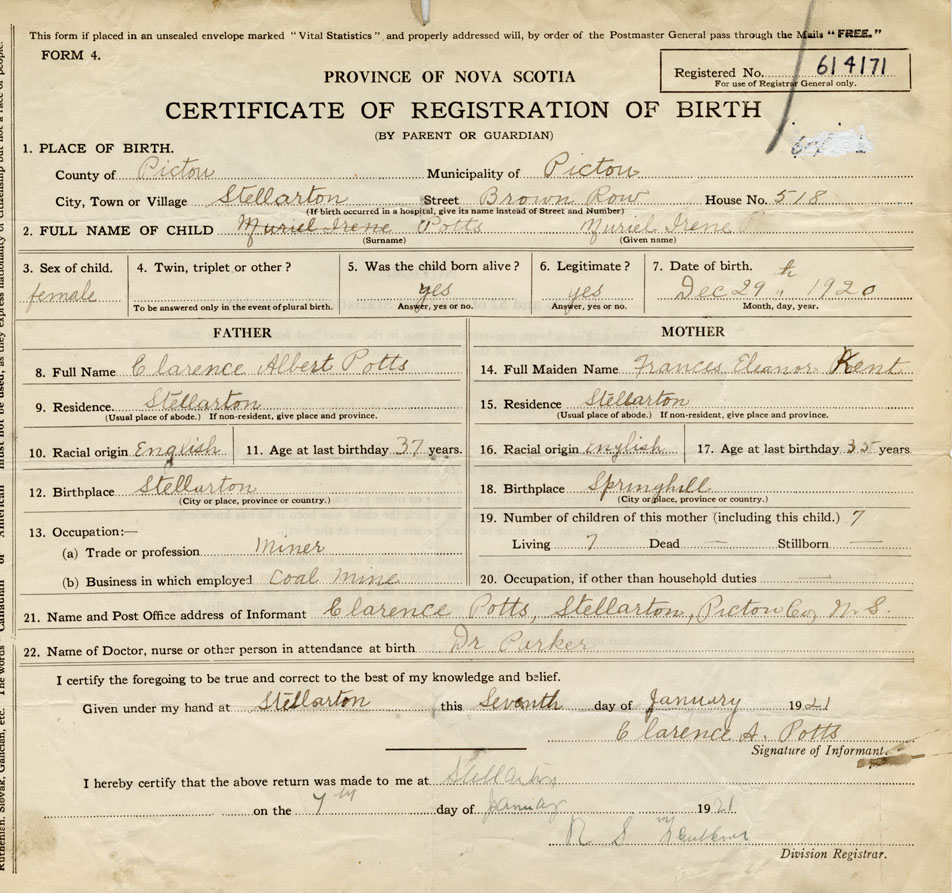 This form if placed in an unsealed envelope marked "Vital Statistics" and properly addressed will, by order of the Postmaster General pass through the Mails "FREE."
FORM 4.
PROVINCE OF NOVA SCOTIA
Registered No. 614171
For use of Registrar General only.
CERTIFICATE OF REGISTRATION OF BIRTH
(BY PARENT OR GUARDIAN)
1. PLACE OF BIRTH.
County of Pictou Municipality of Pictou
City, Town or Village Stellarton Street Brown Row House No. 518
(If birth occurred in a hospital, give its name instead of Street and Number)
2. FULL NAME OF CHILD Muriel Irene Potts Muriel Irene
(Surname) (Given name)
3. Sex of child. 4. Twin, triplet or other? 5. Was the child born alive? 6. Legitimate? 7. Date of birth.
female yes yes Dec 29th 1920
To be answered only in the event of plural birth. Answer, yes or no. Answer, yes or no. Month, day, year.
FATHER MOTHER
8. Full Name Clarence Albert Potts 14. Full Maiden Name Frances Eleanor Kent
9. Residence Stellarton 15. Residence Stellarton
(Usual place of abode.) If non-resident, give place and province. (Usual place of abode.) If non-resident, give place and province.
10. Racial origin English 11. Age at last birthday 37 years. 16. Racial origin English 17. Age at last birthday 35 years
12. Birthplace Stellarton 18. Birthplace Springhill
(City or place, province or country.) (City or place, province or country.)
13. Occupation:— 19. Number of children of this mother (including this child.) 7
(a) Trade or profession Miner Living 7 Dead — Stillborn —
(b) Business in which employed Coal Mine 20. Occupation, if other than household duties —
21. Name and Post Office address of Informant Clarence Potts, Stellarton, Pictou Co, N.S.
22. Name of Doctor, nurse or other person in attendance at birth Dr Parker
I certify the foregoing to be true and correct to the best of my knowledge and belief.
Given under my hand at Stellarton this Seventh day of January 1921
Clarence A. Potts
Signature of Informant.
I hereby certify that the above return was made to me at Stellarton
on the 7th day of January 1921
R S
Division Registrar.